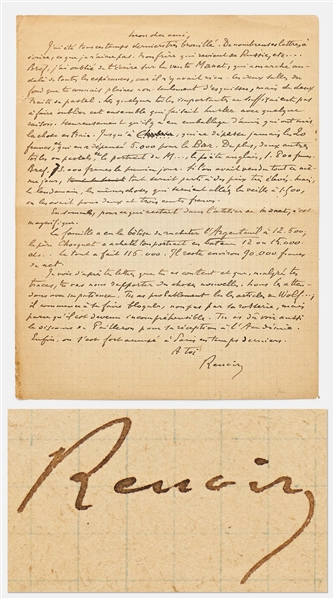 Mon cher ami,
J'ai été tous ces temps derniers très brouillé. De nombreuses lettres à
écrire, ce que je n'aime pas. Mon frère qui revient de Russie, etc...
Bref, j'ai oublié de t'écrire sur la vente Manet, qui a marché au-
delà de toutes les espérances, car il n'y avait rien. Les deux toiles du
fond que tu connais, pleines non seulement d'esquisses, mais de deux
traits de pastel. Les quelques toiles importantes ne suffisaient pas
à faire oublier cet ensemble qui faisait hurler avec quelques
raisons. Heureusement qu'il y a eu emballage d'amis qui ont mis
la chose en train. Jusqu'à qui ne dépasse jamais les 20
francs, qui en a dépensé 5.000 pour le Bar. De plus, deux autres
toiles au pastel, le portrait de M... le poète anglais, 1.800 francs.
Bref, 73.000 francs le premier jour. Si l'on avait vendu tout ce même
jour, tout serait parti à des prix très élevés. Mais,
le lendemain, les mêmes choses qui seraient allées la veille à 1.500,
on les avait pour deux et trois cents francs.
En somme, pour ce qui restait dans l'atelier de Manet, c'est
magnifique.
La famille a eu la bêtise de racheter l'Argenteuil à 12.500,
le père Choquet a acheté l'important en bateau 12 ou 15.000
etc... le tout a fait 116.000. Il reste environ 90.000 francs
de net.
Je vois d'après ta lettre que tu es content et que, malgré tes
tracas, tu vas nous rapporter du chose nouvelles. Nous les atten-
dons avec impatience. Tu as probablement lu les articles de Wolff...,
il commence à faire blaguer, non pas par sa rosserie, mais
parce qu'il est devenu incompréhensible. Tu as dû voir aussi
le discours de Pailleron pour sa réception à l'Académie.
Enfin, on s'est fort amusé à Paris ces temps derniers.
A toi
Renoir
Renoir